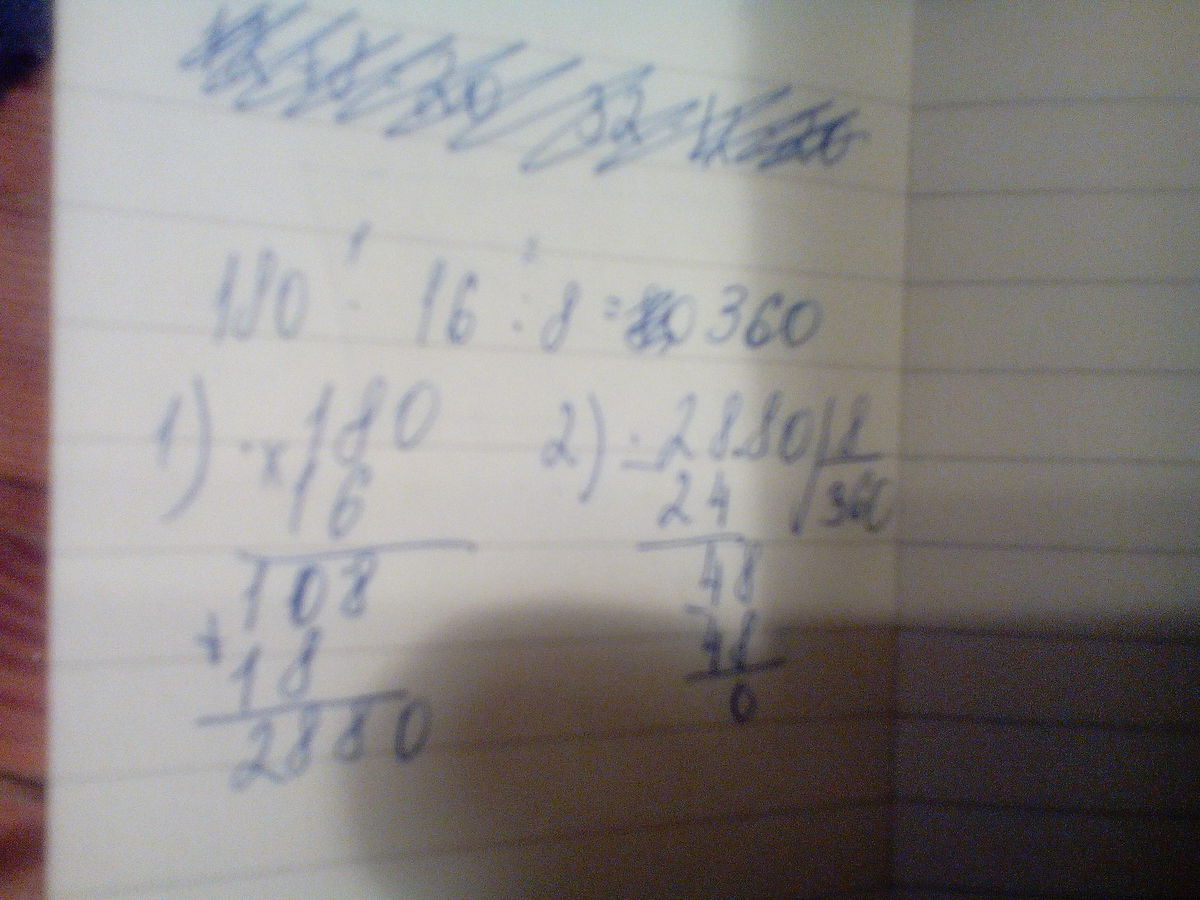 180 · 16 : 8 = 360
1) × 180
16
108
+
18
2880
2) - 2880 | 8
24 360
48
- 48
0